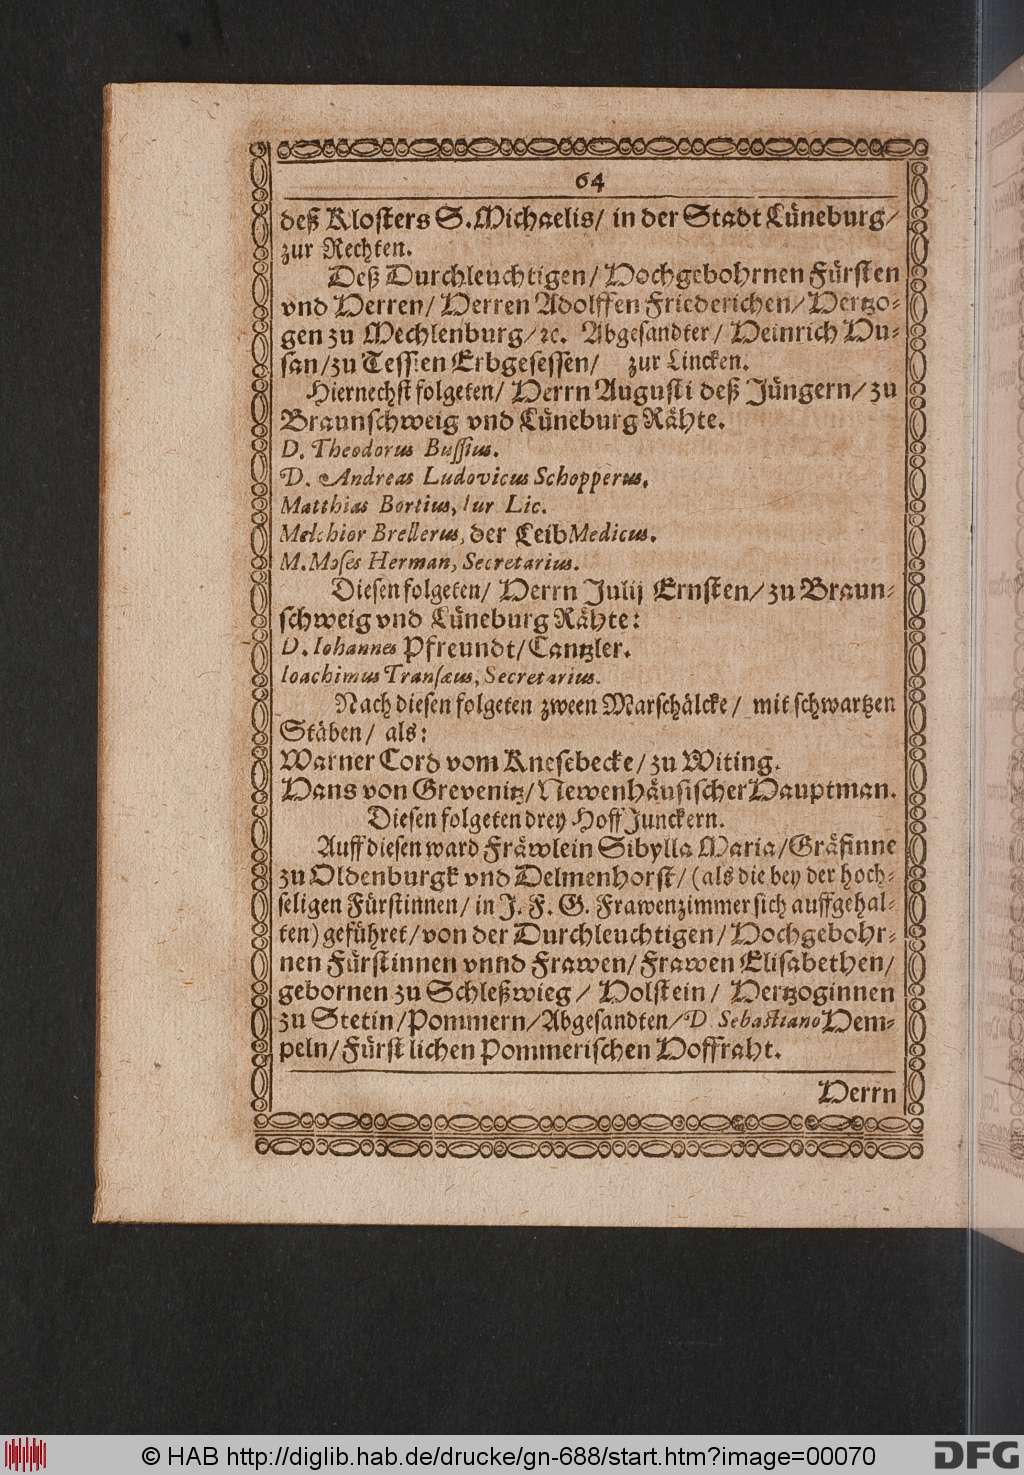 64
deß Klosters S. Michaelis/ in der Stadt Lüneburg/
zur Rechten.
Deß Durchleuchtigen/ Hochgebohrnen Fürsten
vnd Herren/ Herren Adolffen Friederichen/ Hertzo-
gen zu Mechlenburg/ ꝛc. Abgesandter/ Heinrich Hu-
san/ zu Tessien Erbgesessen/ zur Lincken.
Hiernechst folgeten/ Herrn Augusti deß Jüngern/ zu
Braunschweig vnd Lüneburg Rähte.
D. Theodorus Bussius.
D. Andreas Ludovicus Schopperus.
Matthias Bortius, Iur Lic.
Melchior Brellerus, der Leib Medicus.
M. Moses Herman, Secretarius.
Diesen folgeten/ Herrn Julij Ernsten/ zu Braun-
schweig vnd Lüneburg Rähte:
D. Iohannes Pfreundt/ Cantzler.
Ioachimus Transæus, Secretarius.
Nach diesen folgeten zween Marschälcke/ mit schwartzen
Stäben/ als:
Warner Cord vom Knesebecke/ zu Witing.
Hans von Grevenitz/ Newenhäusischer Hauptman.
Diesen folgeten drey Hoff Junckern.
Auff diesen ward Fräwlein Sibylla Maria/ Gräfinne
zu Oldenburgk vnd Delmenhorst/ (als die bey der hoch-
seligen Fürstinnen/ in J. F. G. Frawenzimmer sich auffgehal-
ten) geführet/ von der Durchleuchtigen/ Hochgebohr-
nen Fürstinnen vnnd Frawen/ Frawen Elisabethen/
gebornen zu Schleßwieg/ Holstein/ Hertzoginnen
zu Stetin/ Pommern/ Abgesandten/ D. Sebastiano Hem-
peln/ Fürstlichen Pommerischen Hoffraht.
Herrn
© HAB http://diglib.hab.de/drucke/gn-688/start.htm?image=00070
DFG